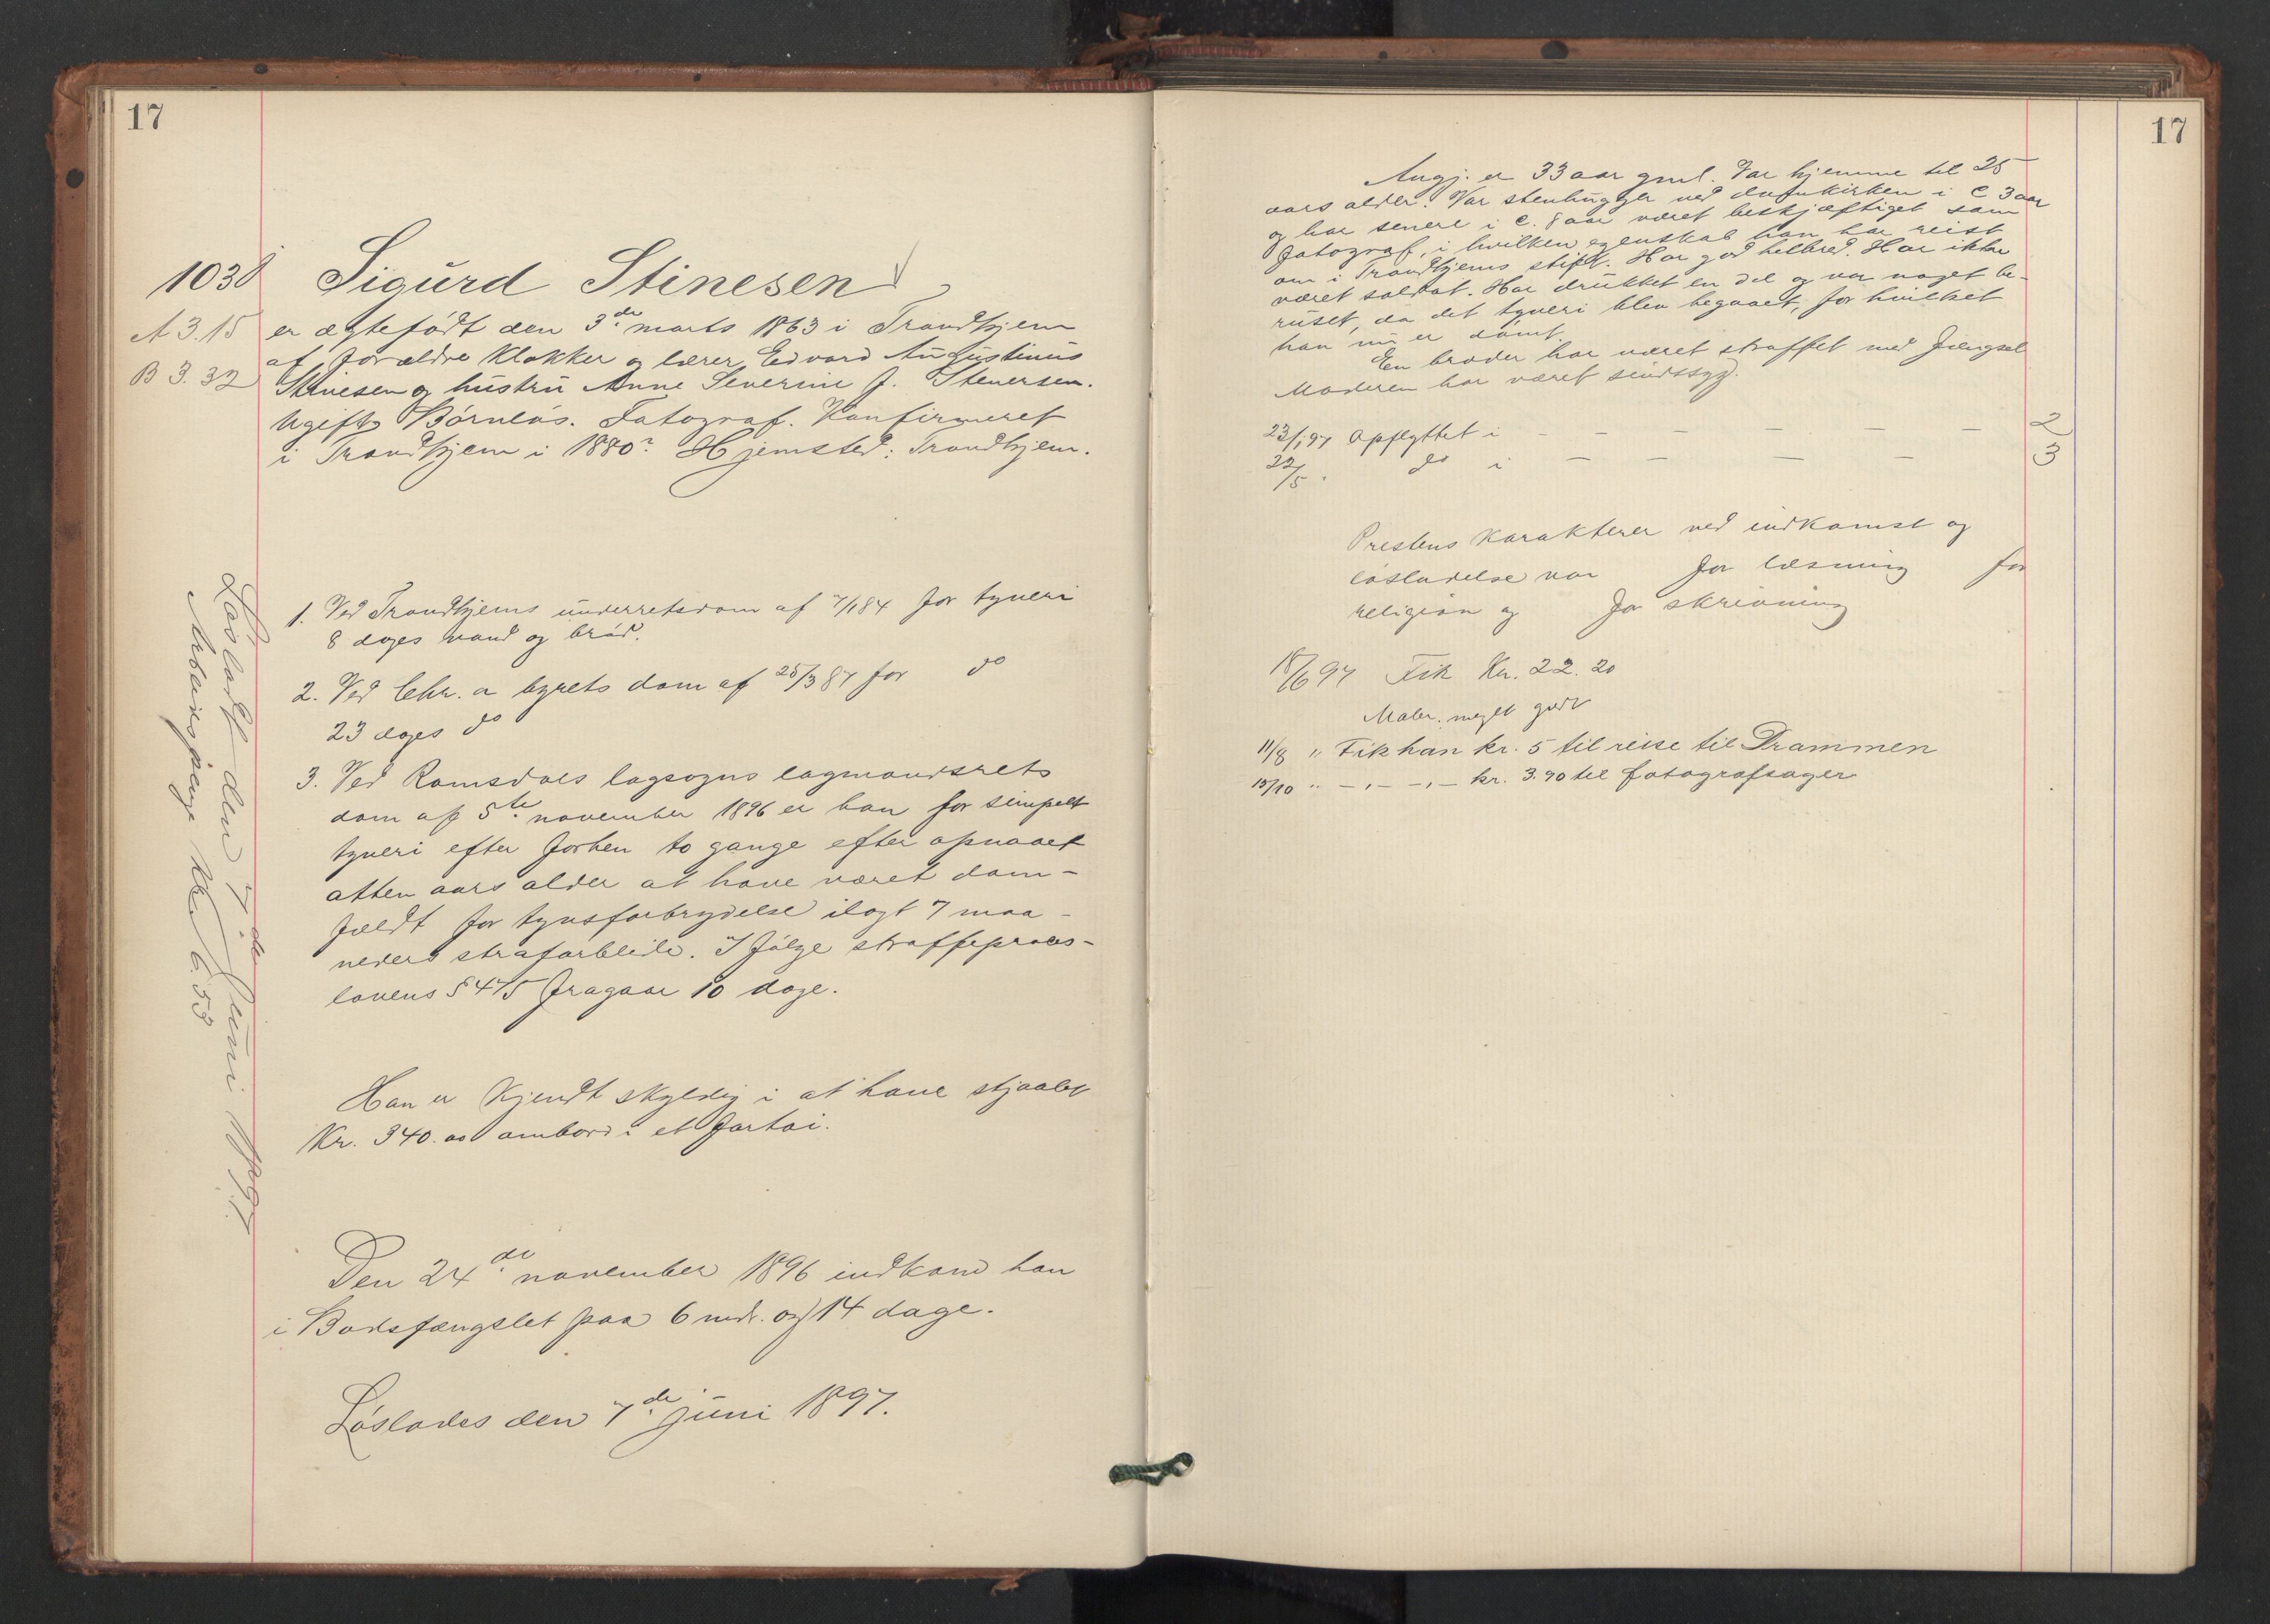 17
103
A 3.15
B 3.32
Sigurd Stinesen
er ægtefödt den 3de marts 1863 i Trondhjem
af forældre klokker og lærer Edvard Augustinus
Stinesen og hustru Anne Severine f. Stenersen.
Ugift. Börnlös. Fotograf. Konfirmeret
i Trondhjem i 1880? Hjemsted: Trondhjem.
1. Ved Trondhjems underretsdom af 7/1 84 for tyveri
8 dages vand og bröd.
2. Ved Chr.a byrets dom af 25/3 87 for do
23 dages do
3. Ved Romsdals lagsogns lagmandsrets
dom af 5te november 1896 er han for simpelt
tyveri efter forhen to gange efter opnaaet
atten aars alder at have været dom-
fældt for tyvsforbrydelse ilagt 7 maa-
neders strafarbeide. I fölge straffeproces-
lovens § 475 fragaar 10 dage.
Han er kjendt skyldig i at have stjaalet
Kr. 340.00 ombord i et fartöi.
Den 24de november 1896 indkom han
i Bodsfængslet paa 6 mdr. og 14 dage.
Löslades den 7de juni 1897.
Lösladt den 7de Juni 1897
Arbeidspenge Kr. 6.53
17
Angj. er 33 aar gml. Var hjemme til 25
aars alder. Var stenhugger ved domkirken i c 3 aar
og har senere i c. 8 aar været beskjæftiget som
fotograf, i hvilken egenskab han har reist
om i Trondhjems stift. Har god helbred. Har ikke
været soldat. Har drukket en del og var noget be-
ruset, da det tyveri blev begaaet, for hvilket
han nu er dömt.
En broder har været straffet med fængsel
Moderen har været sindssyg.
23/1 97 Opflyttet i – – – – – – 2
22/5 " do i – – – – 3
Prestens karakterer ved indkomst og
lösladelse var for læsning for
religion og for skrivning
18/6 97 Fik Kr. 22.20
Maler. meget godt
11/8 " Fik han kr. 5 til reise til Drammen
15/10 " –"– –"– kr. 3.90 til fotografsager